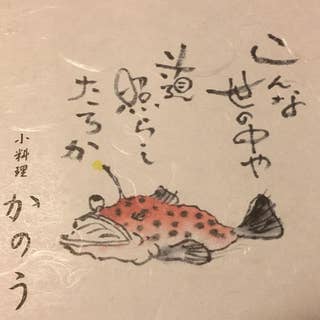 こんな
世の中や
道照らし
たろか
小料理
かのう